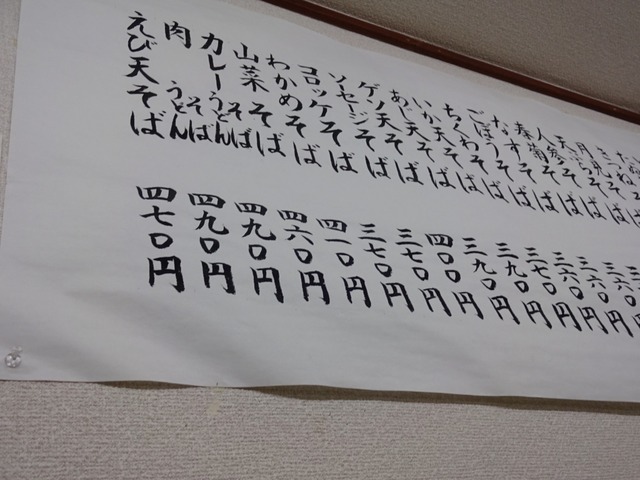 きつねそば
月見そば
天ぷらそば
人参そば
春菊そば
なすそば
ごぼうそば
ちくわそば
いか天そば
あじ天そば
ゲソ天そば
ソーセージそば
コロッケそば
わかめそば
山菜そば
カレーうどんそば
肉うどんそば
えび天そば
三六〇円
三六〇円
三六〇円
三七〇円
三九〇円
三九〇円
四〇〇円
三七〇円
三七〇円
四一〇円
四六〇円
四九〇円
四九〇円
四七〇円